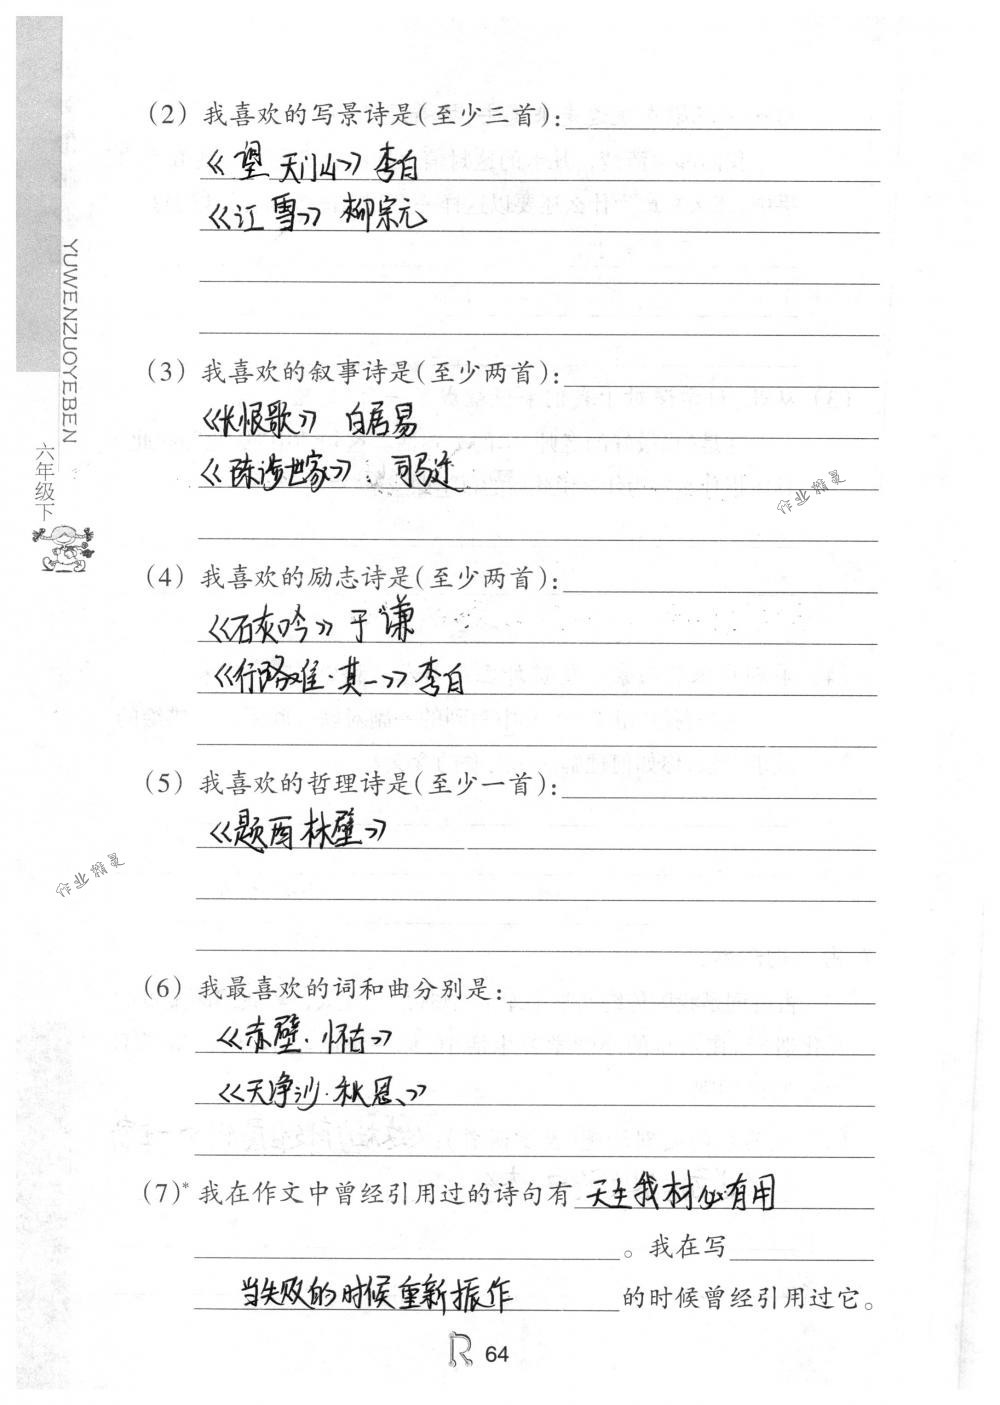 (2) 我喜欢的写景诗是(至少三首):
《望天门山》李白
《江雪》柳宗元
(3) 我喜欢的叙事诗是(至少两首):
《长恨歌》 白居易
《陈涉世家》: 司马迁
(4) 我喜欢的励志诗是(至少两首):
《石灰吟》于谦
《行路难·其一》李白
(5) 我喜欢的哲理诗是(至少一首):
《题西林壁》
(6) 我最喜欢的词和曲分别是:
《赤壁·怀古》
《天净沙·秋思》
(7)* 我在作文中曾经引用过的诗句有 天生我材必有用
。我在写
当失败的时候重新振作 的时候曾经引用过它。
R 64
YUWENZUOYEBEN
六年级下
作业精灵
作业精灵